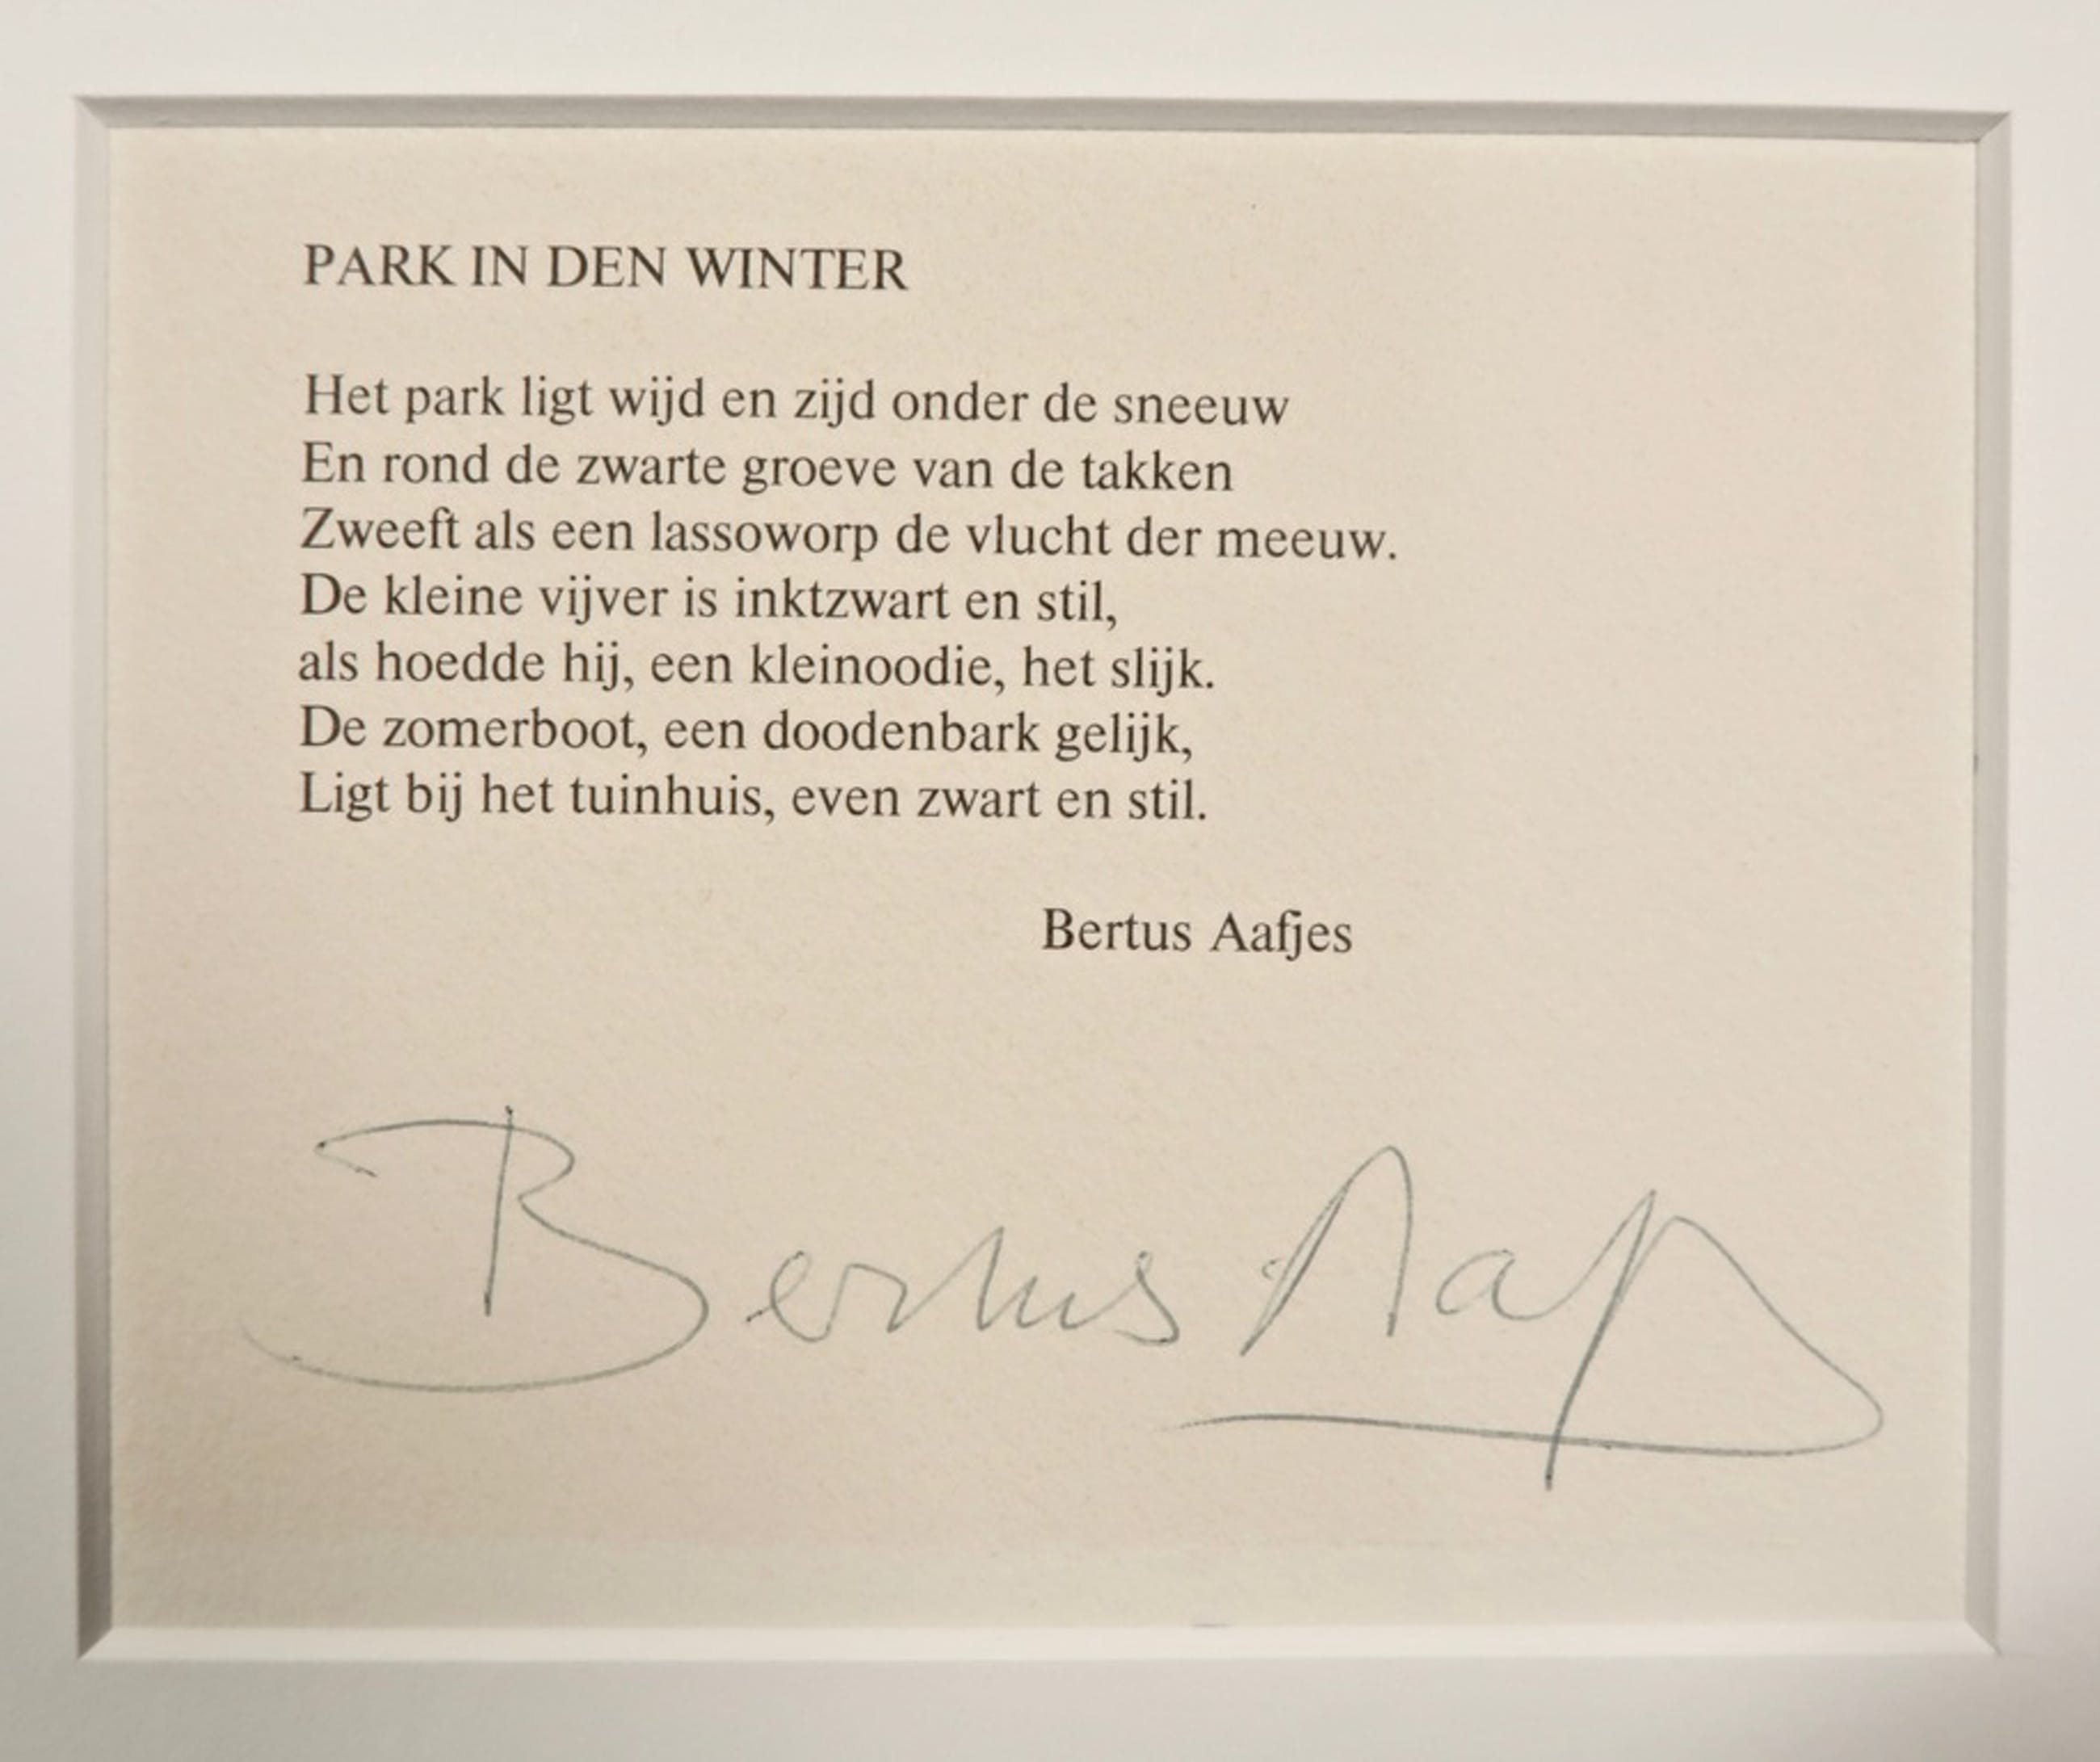 PARK IN DEN WINTER
Het park ligt wijd en zijd onder de sneeuw
En rond de zwarte groeve van de takken
Zweeft als een lassoworp de vlucht der meeuw.
De kleine vijver is inktzwart en stil,
als hoedde hij, een kleinoodie, het slijk.
De zomerboot, een doodenbark gelijk,
Ligt bij het tuinhuis, even zwart en stil.
Bertus Aafjes
Bertus Aafj